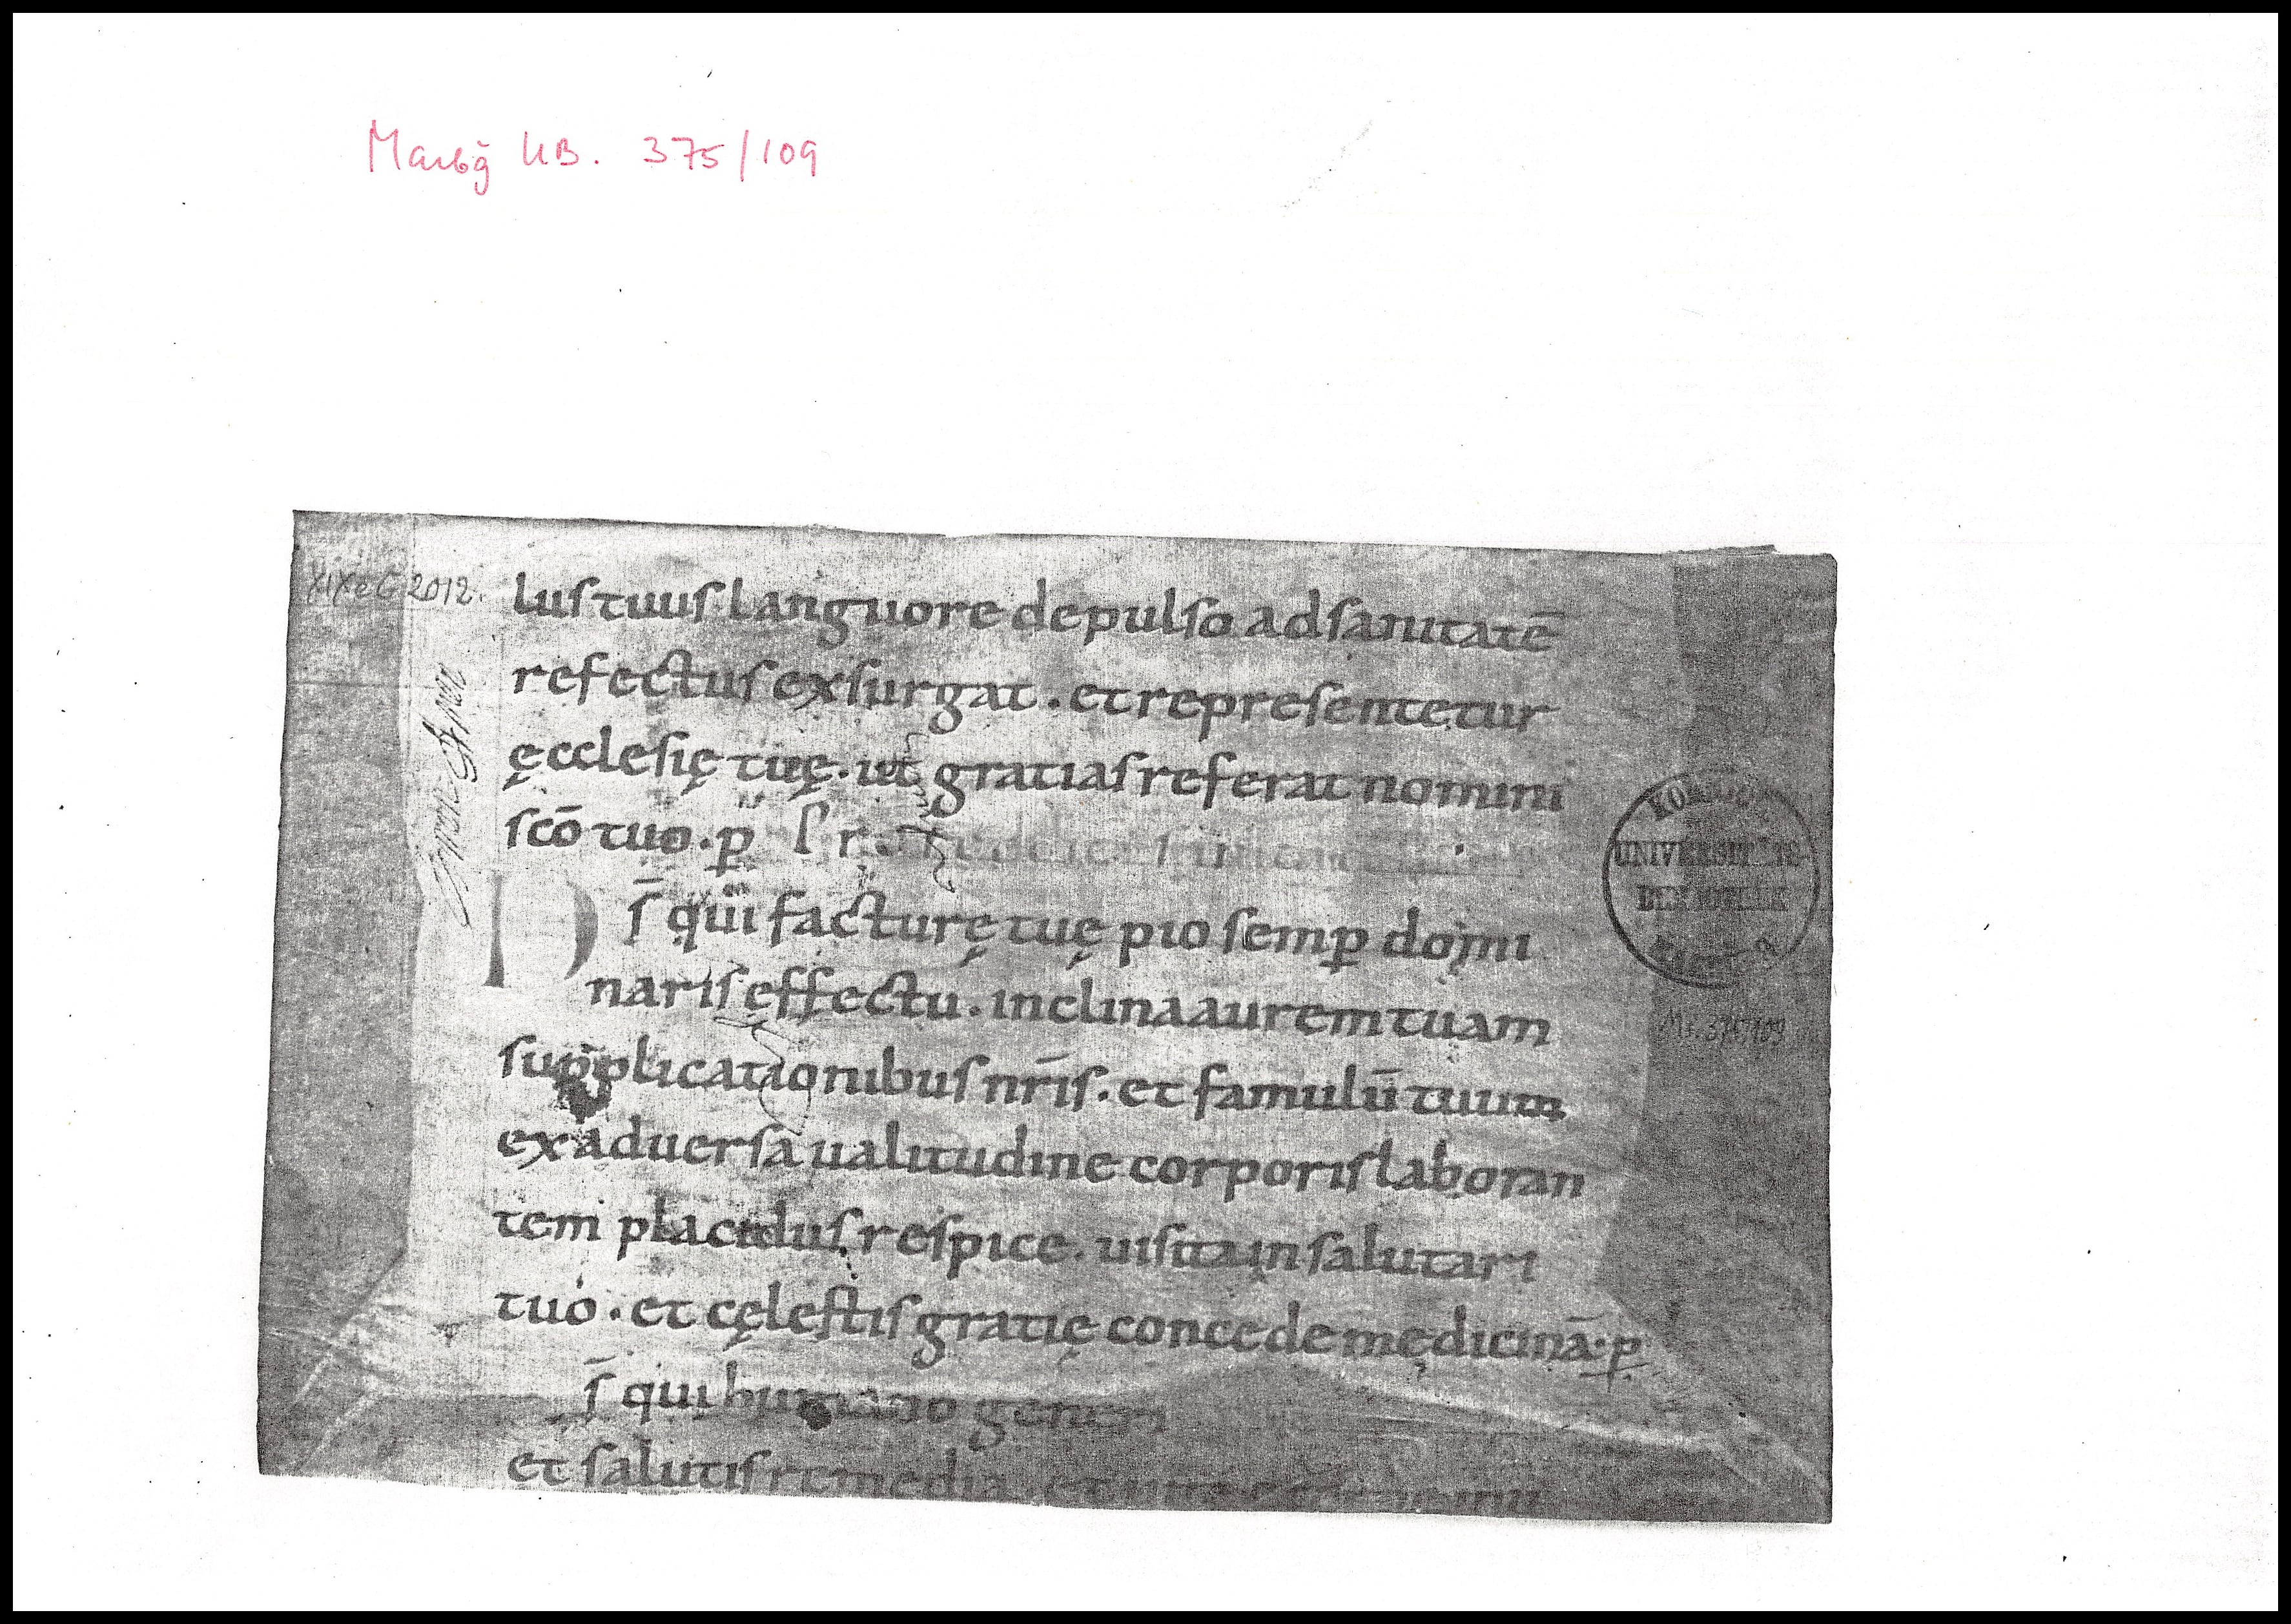 Marbg̃ UB. 375/109
XIXeC 2012.
lustuus languore depulso adsanitatē
refectus exsurgat . et representetur
ęcclesię tuę . ut gratias referat nomini
scō tuo . p̲
D s̄ qui facturę tuę pio semp̲ domi
naris effectu . inclina aurem tuam
supplicationibus nr̄is . et famulū tuum
ex aduersa ualitudine corporis laboran
tem placidus respice . uisita in salutari
tuo . et cęlestis gratię concede medicinā . p̲
s̄ qui humano generi
et salutis remedia . et
UNIVERSITÄTS-
BIBLIOTHEK
Ms. 375/109